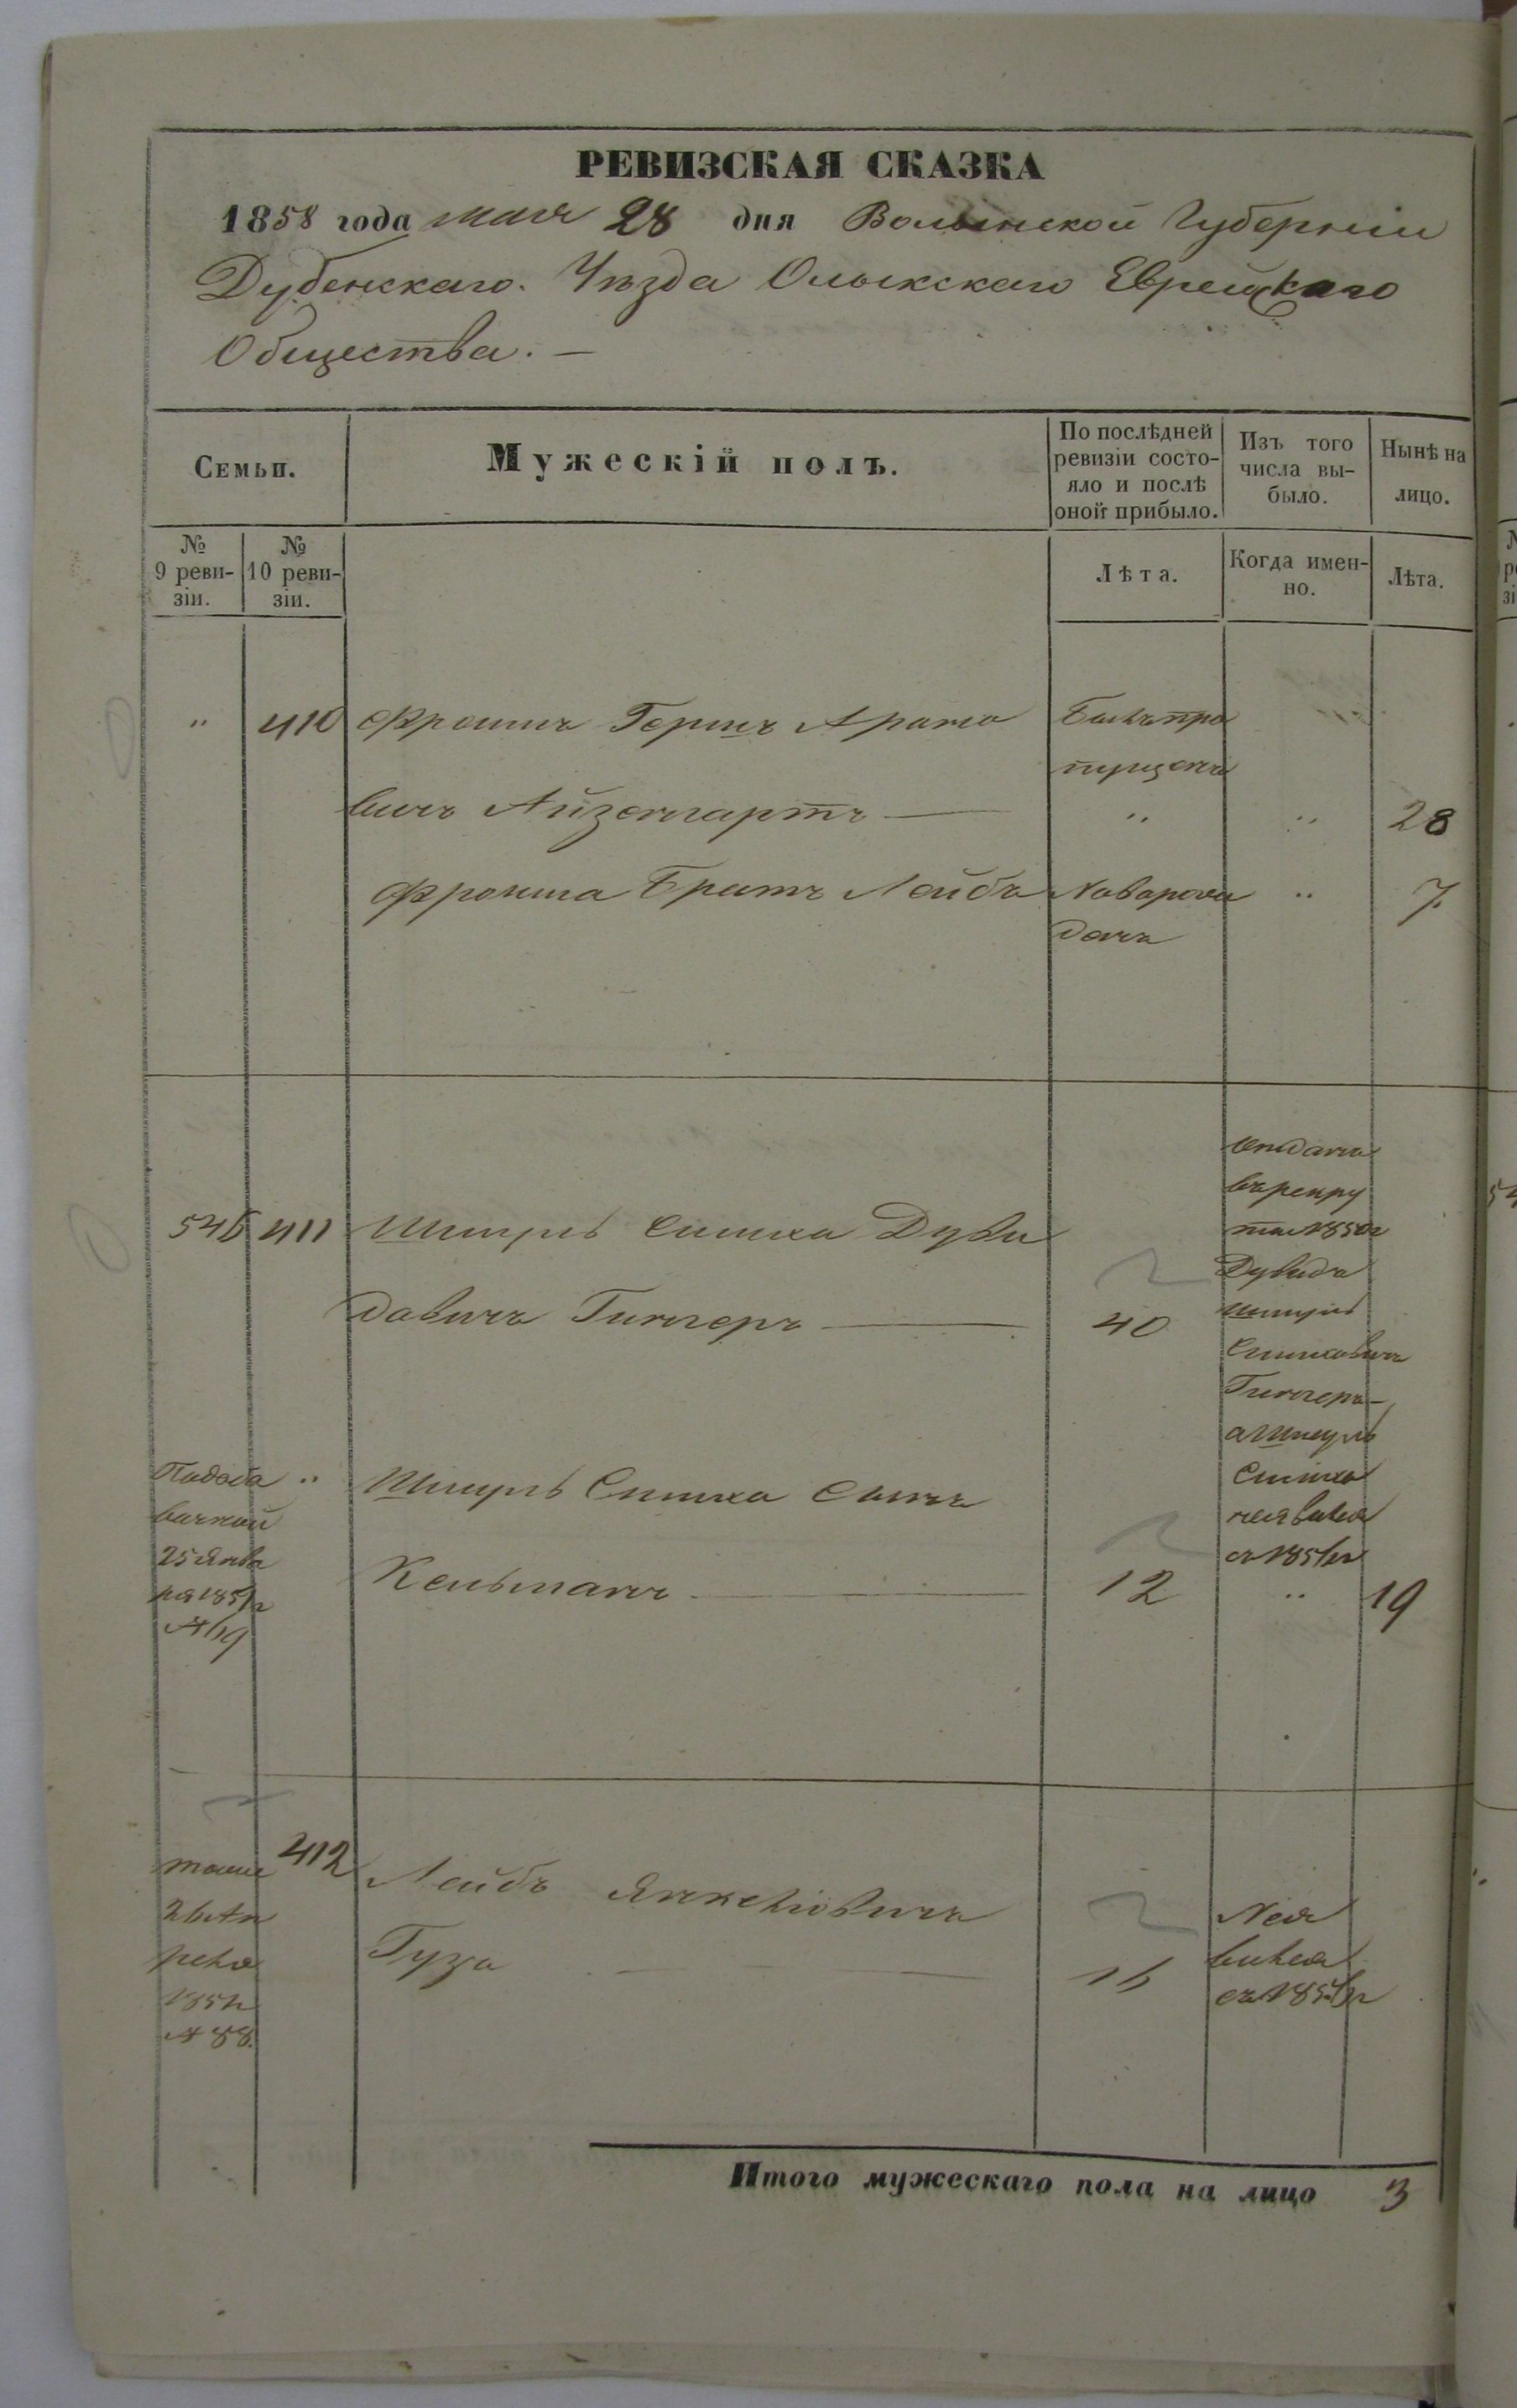 РЕВИЗСКАЯ СКАЗКА
1858 года мая 28 дня Волынской Губерніи
Дубенскаго Уѣзда Олыкскаго Еврейскаго
Общества. —
Семьи.
Мужескій полъ.
По послѣдней
ревизіи состо-
яло и послѣ
оной прибыло.
Изъ того
числа вы-
было.
Нынѣ на
лицо.
№
9 реви-
зіи.
№
10 реви-
зіи.
Лѣта.
Когда имен-
но.
Лѣта.
" 410 Фроимъ Гершъ Ароно Былъ про
пущенъ
вичъ Айзенгартъ — " " 28
Фроима Братъ Лейбъ Новорож " 7.
денъ
546 411 Шмуль Симха Дуви
давичъ Гингеръ — 40
отданъ
въ рекру
ты 1850г
Дувидъ
Шмуль
Симховичъ
Гингеръ —
а Шмуль
Симха
неявился
съ 1856г
Подоба "
вочной
25 Янва
ря 1851г
№19
Шмуль Симха Сынъ
Кельманъ — 12 " 19
тоже
26 Ап
реля
1851г
№ 88.
412 Лейбъ Янкелiовичъ
Гуза — 16
Нея
вился
съ 1856г
Итого мужескаго пола на лицо 3